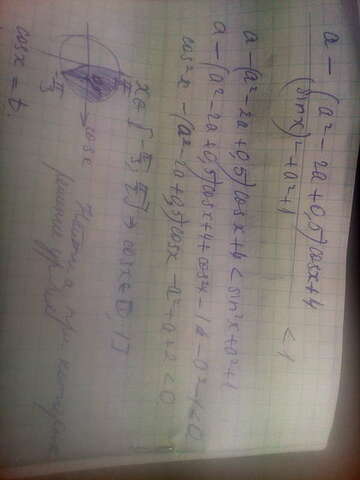 a - (a² - 2a + 0,5)cosx + 4
(sinx)² + a² + 1
< 1
a - (a² - 2a + 0,5)cosx + 4 < sin²x + a² + 1
a - (a² - 2a + 0,5)cosx + 4 + cos²x - 1 - a² - 1 < 0
cos²x - (a² - 2a + 0,5)cosx - a² + a + 2 < 0
x∈[-π/3; π/2] → cosx∈[0; 1]
π/2
cosx
-π/3
Найти a, при которых
решение
cosx = t.